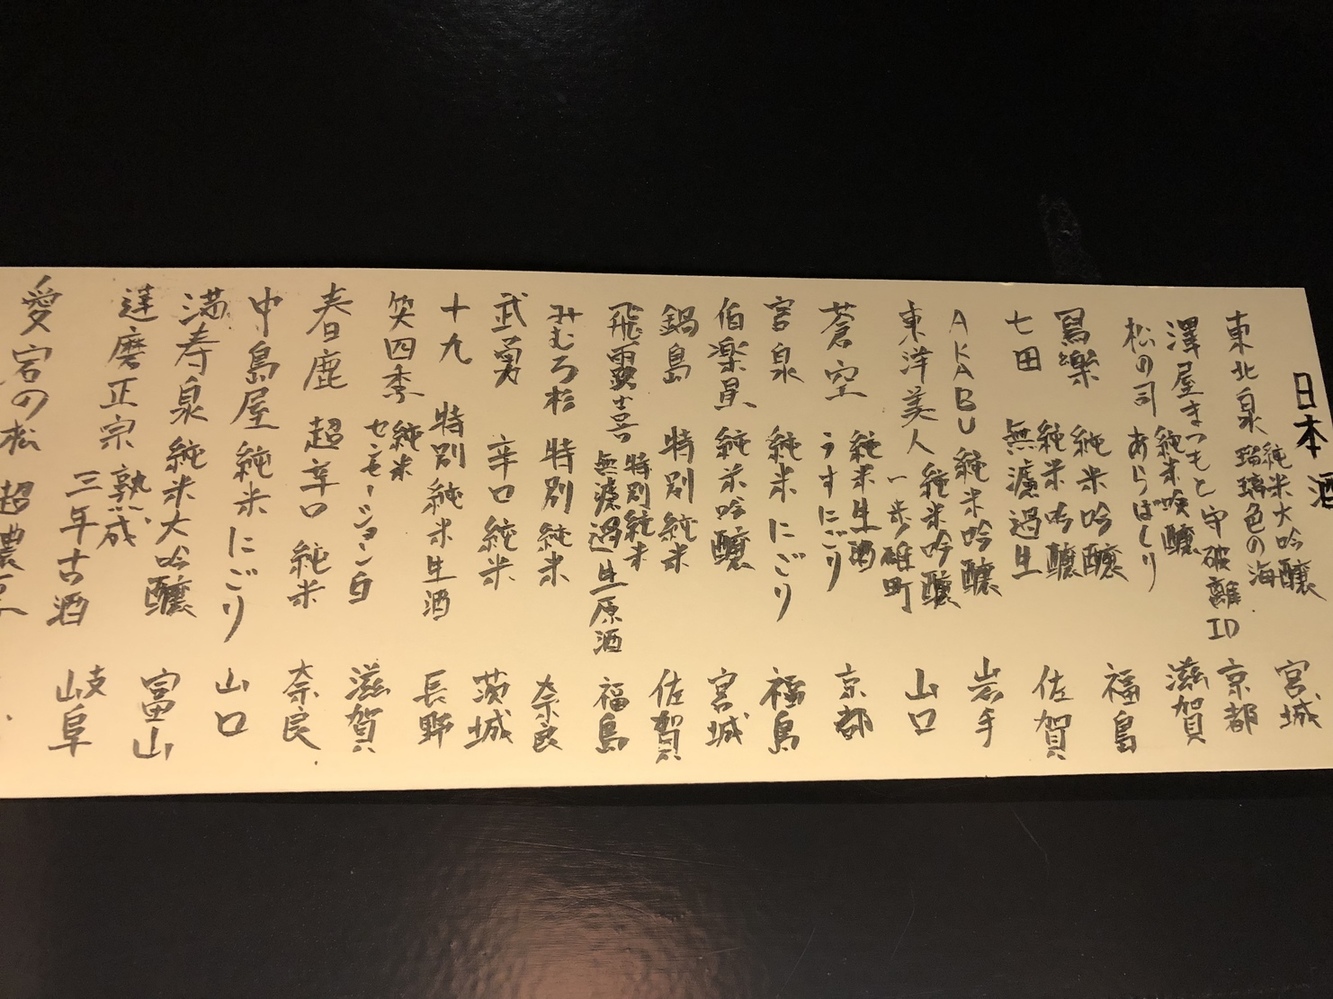 日本酒
東北泉 純米大吟醸 瑠璃色の海 宮城
澤屋まつもと 守破離ID 京都
松の司 純米吟醸 あらばしり 滋賀
冩樂 純米吟醸 福島
七田 純米吟醸 無濾過生 佐賀
AKABU 純米吟醸 岩手
東洋美人 純米吟醸 一歩 山口
蒼空 純米生酒 うすにごり 京都
宮泉 純米 にごり 福島
伯楽星 純米吟醸 宮城
鍋島 特別純米 佐賀
飛露喜 特別純米 無濾過生原酒 福島
みむろ杉 特別純米 奈良
武勇 辛口純米 茨城
十九 特別純米生酒 長野
笑四季 純米 センセーション白 滋賀
春日鹿 超辛口 純米 奈良
中島屋 純米にごり 山口
満寿泉 純米大吟醸 富山
達磨正宗 熟成 三年古酒 岐阜
愛宕の松 超濃厚